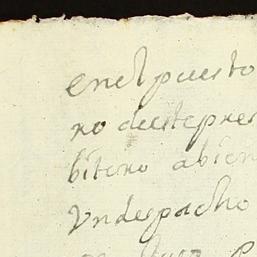 enel puesto
ro deeste pres
bitero abien
Vn despacho